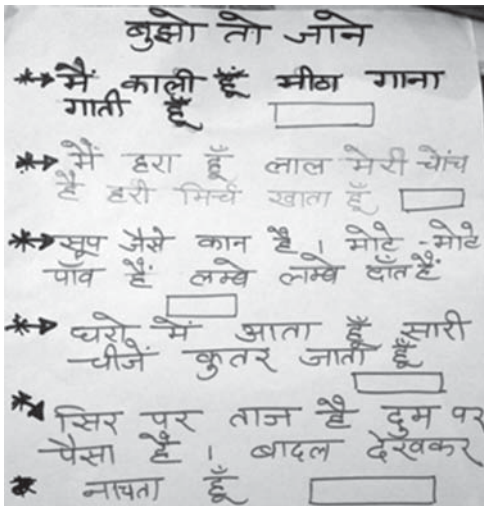 बुझो तो जाने
मैं काली हूँ मीठा गाना
गाती हूँ
मैं हरा हूँ लाल मेरी चोंच
है हरी मिर्च खाता हूँ
सूप जैसे कान है । मोटे -मोटे
पाँव हैं लम्बे लम्बे दाँत हैं
घरो में आता हूँ सारी
चीजें कुतर जाता हूँ
सिर पर ताज है दुम पर
पैसा है । बादल देखकर
नाचता हूँ